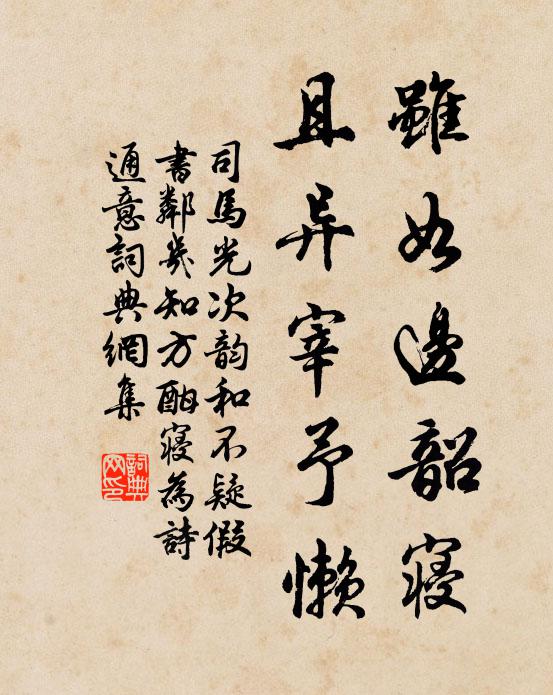 雖如邊韶寢
且异宰予懶
司馬光次韵和不疑假
書鄰幾知方酣寢為詩
通意詞典網集
詞典网印